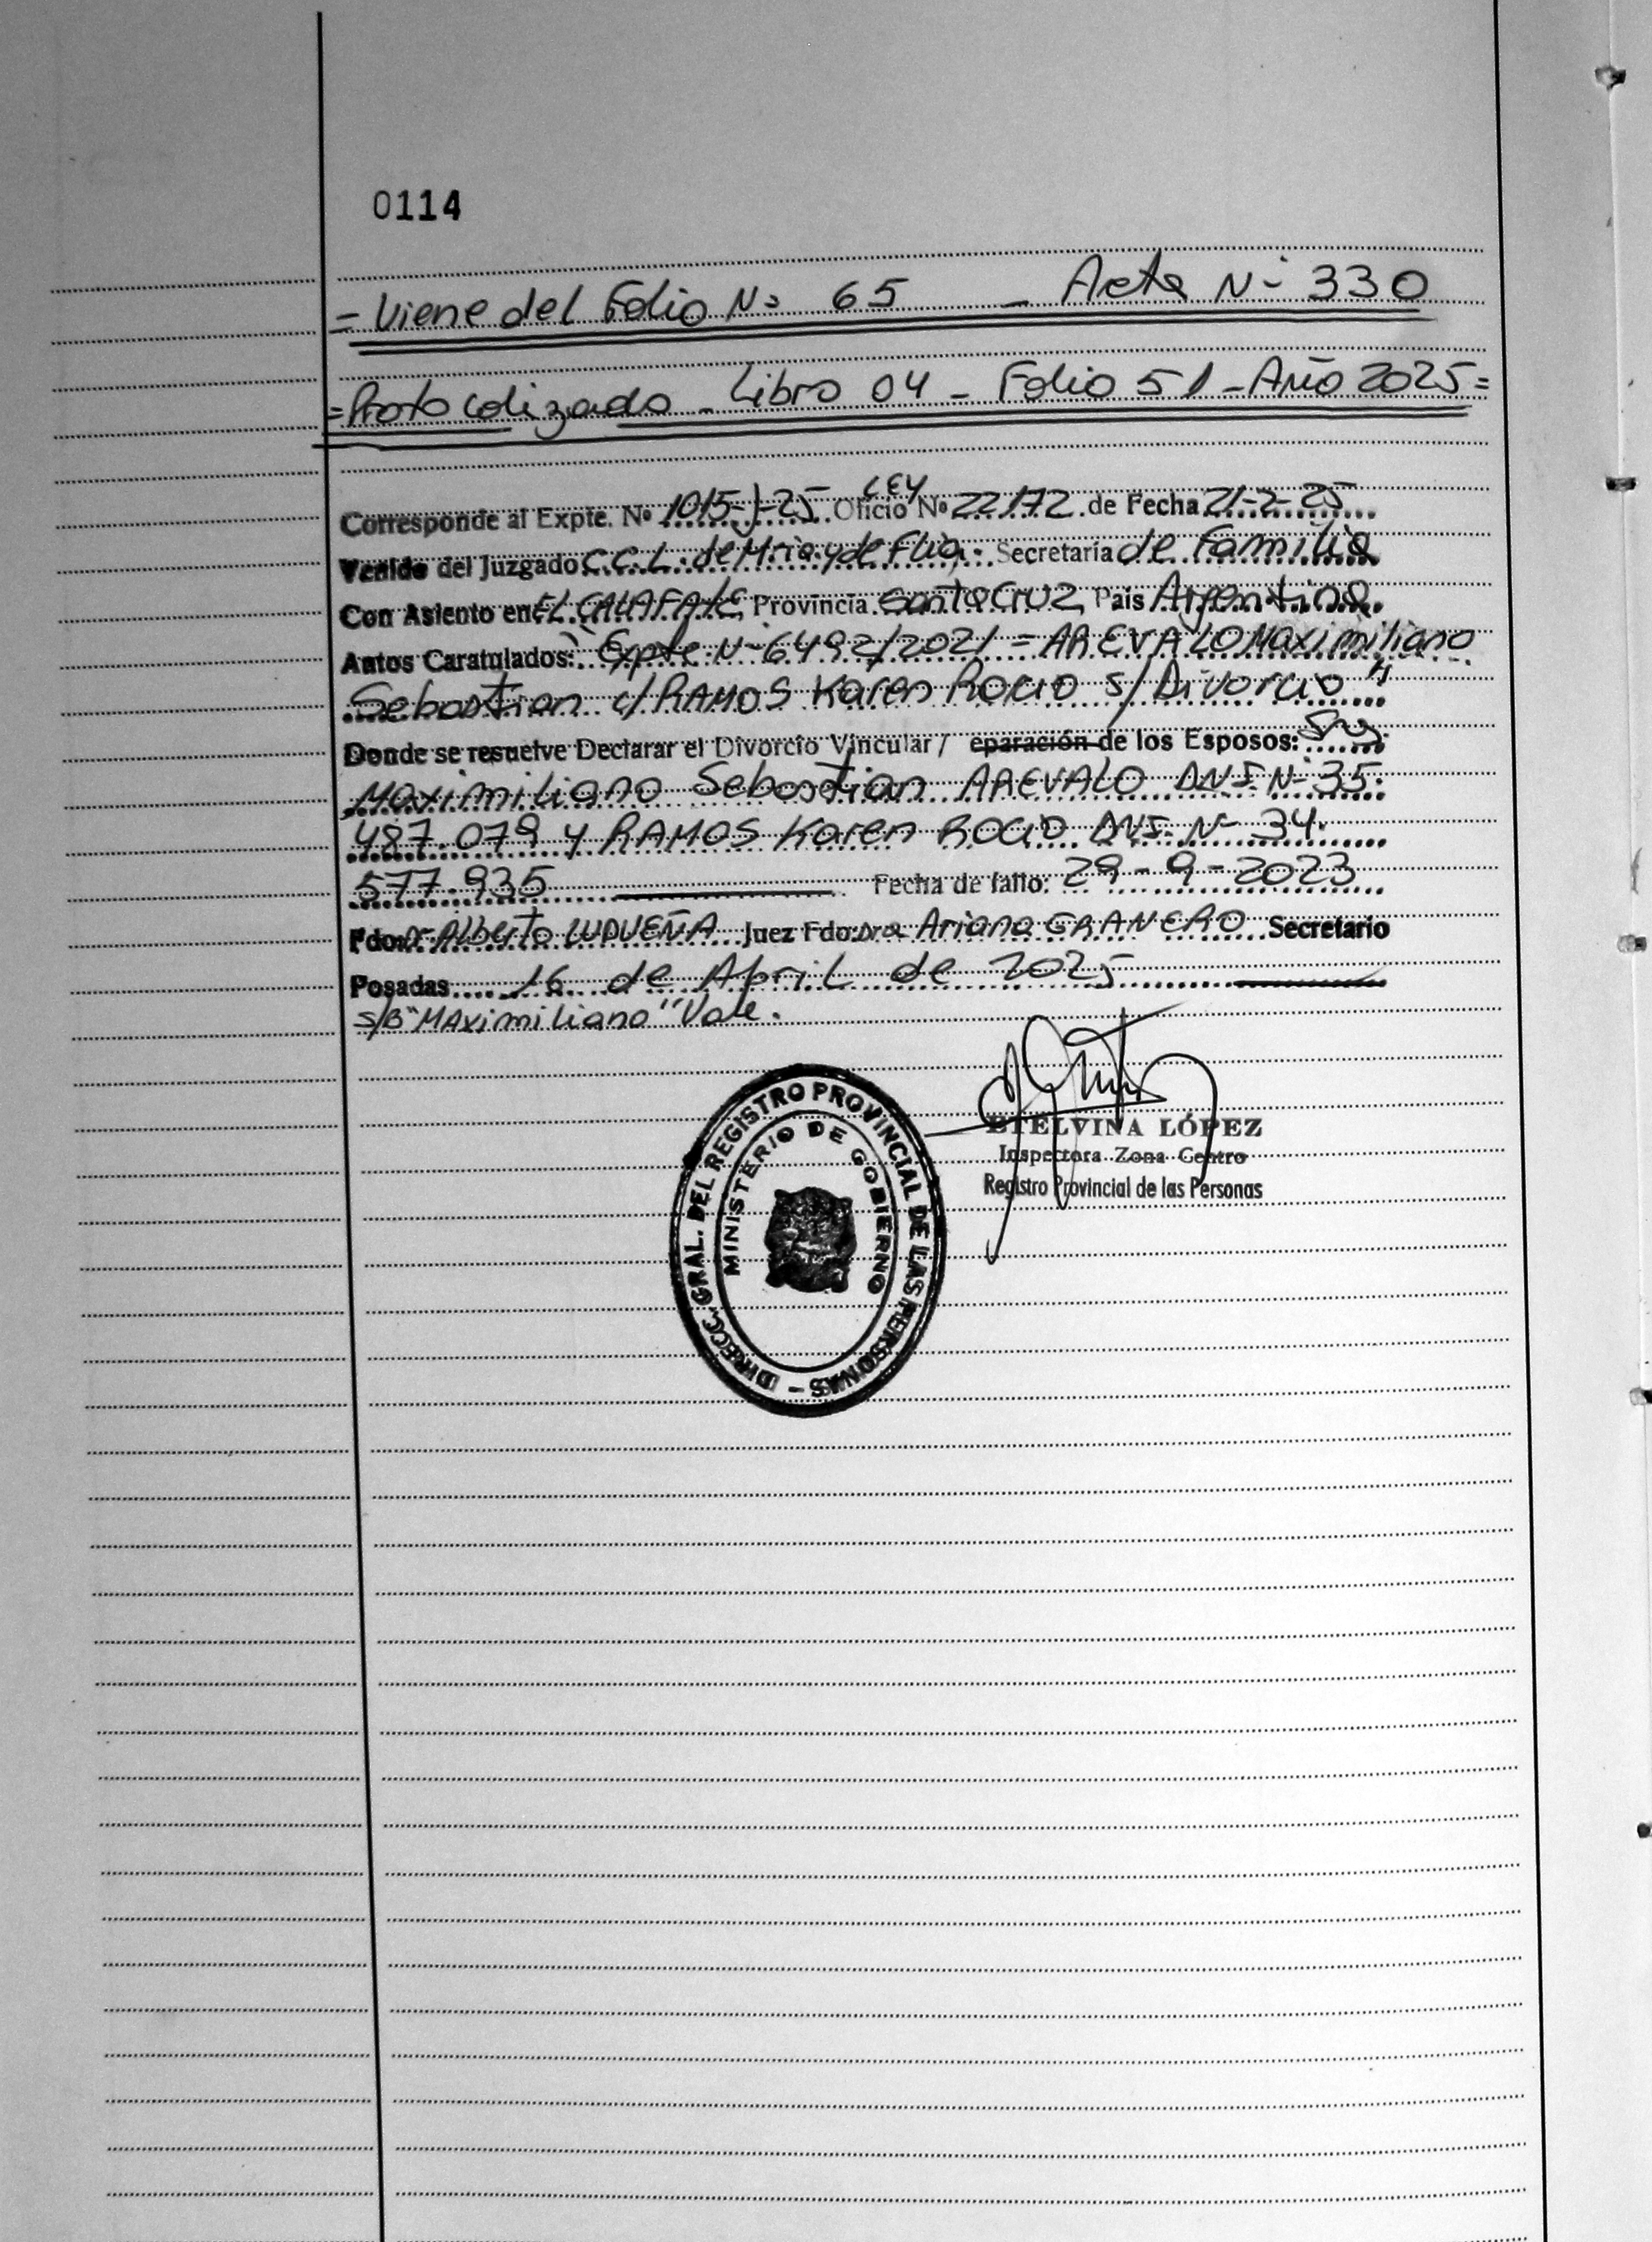 0114
= Viene del Folio Nº 65 - Acta Nº 330
= Protocolizado - Libro 04 - Folio 51 - Año 2025 =
Corresponde al Expte. Nº 1015-J-25 Oficio LEY Nº 22172 de Fecha 21-2-25
Venido del Juzgado C.C.L. de Mria y de Flia. Secretaría de Familia
Con Asiento en EL CALAFATE Provincia Santa Cruz País Argentina
Autos Caratulados: "Expte Nº 6492/2021 = AREVALO Maximiliano
Sebastian c/ RAMOS Karen Rocio s/ Divorcio"
Donde se resuelve Declarar el Divorcio Vincular / eparación de los Esposos:
Maximiliano Sebastian AREVALO DNI Nº 35.
487.079 y RAMOS Karen ROCIO DNI Nº 34.
577.935 Fecha de fallo: 29-9-2023
Fdo: Dr Alberto LUDUEÑA Juez Fdo: Dra Ariana GRANERO Secretario
Posadas 16 de Abril de 2025
s/B "Maximiliano" Vale.
DIRECC. GRAL. DEL REGISTRO PROVINCIAL DE LAS PERSONAS -
MINISTERIO DE GOBIERNO
ETELVINA LÓPEZ
Inspectora Zona Centro
Registro Provincial de las Personas